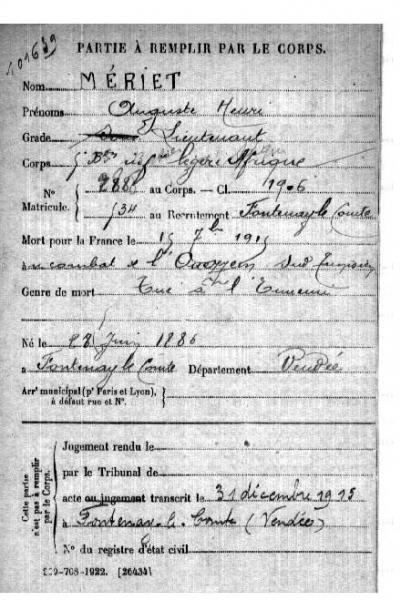 101639
PARTIE À REMPLIR PAR LE CORPS.
Nom MÉRIET
Prénoms Auguste Henri
Grade S/ Lieutenant
Corps 5e Bon inf légère Afrique
N° 2888 au Corps. — Cl. 1906
Matricule. 534 au Recrutement Fontenay le Comte
Mort pour la France le 15 7bre 1915
au combat de l' Sud Tunisien
Genre de mort Tué à l'Ennemi
Né le 28 Juin 1886
à Fontenay le Comte Département Vendée
Arrt municipal (pr Paris et Lyon),
à défaut rue et N°.
Cette partie
n'est pas à remplir
par le Corps.
Jugement rendu le
par le Tribunal de
acte ou jugement transcrit le 31 décembre 1915
à Fontenay-le-Comte (Vendée)
N° du registre d'état civil
-708-1922. [26434]